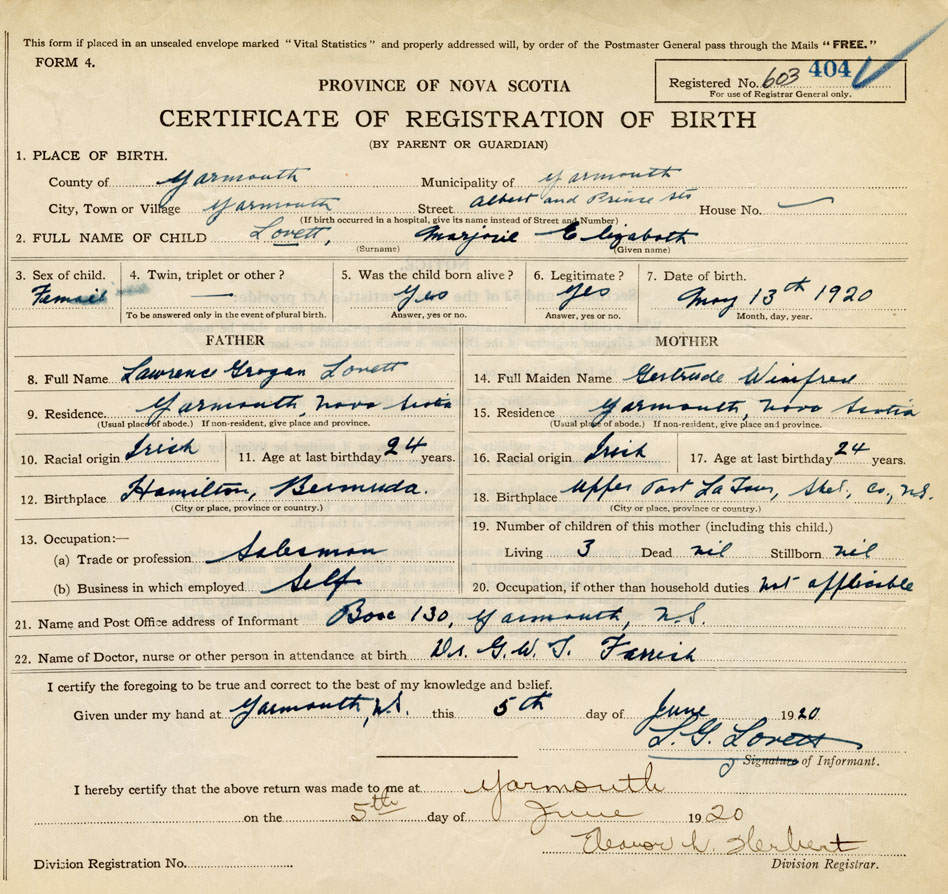 This form if placed in an unsealed envelope marked "Vital Statistics" and properly addressed will, by order of the Postmaster General pass through the Mails "FREE."
FORM 4.
Registered No. 603 404
For use of Registrar General only.
PROVINCE OF NOVA SCOTIA
CERTIFICATE OF REGISTRATION OF BIRTH
(BY PARENT OR GUARDIAN)
1. PLACE OF BIRTH.
County of Yarmouth Municipality of Yarmouth
City, Town or Village Yarmouth Street Albert and Prince Sts House No. —
(If birth occurred in a hospital, give its name instead of Street and Number)
2. FULL NAME OF CHILD Lovett, Marjorie Elizabeth
(Surname) (Given name)
3. Sex of child. 4. Twin, triplet or other? 5. Was the child born alive? 6. Legitimate? 7. Date of birth.
Femail — Yes Yes May 13th 1920
To be answered only in the event of plural birth. Answer, yes or no. Answer, yes or no. Month, day, year.
FATHER MOTHER
8. Full Name Lawrence Grogan Lovett 14. Full Maiden Name Gertrude Winifred
9. Residence. Yarmouth, Nova Scotia 15. Residence Yarmouth, Nova Scotia
(Usual place of abode.) If non-resident, give place and province. (Usual place of abode.) If non-resident, give place and province.
10. Racial origin Irish 11. Age at last birthday 24 years. 16. Racial origin Irish 17. Age at last birthday 24 years.
12. Birthplace Hamilton, Bermuda. 18. Birthplace Upper Port La Tour, Shel., Co., N.S.
(City or place, province or country.) (City or place, province or country.)
13. Occupation:— 19. Number of children of this mother (including this child.)
(a) Trade or profession Salesman Living 3 Dead nil Stillborn nil
(b) Business in which employed Self 20. Occupation, if other than household duties not applicable
21. Name and Post Office address of Informant Box 130, Yarmouth, N.S.
22. Name of Doctor, nurse or other person in attendance at birth Dr. G.W.T. Farrish
I certify the foregoing to be true and correct to the best of my knowledge and belief.
Given under my hand at Yarmouth, N.S. this 5th day of June 1920
L. G. Lovett
Signature of Informant.
I hereby certify that the above return was made to me at Yarmouth
on the 5th day of June 1920
Eleanor L. Herbert
Division Registration No. Division Registrar.